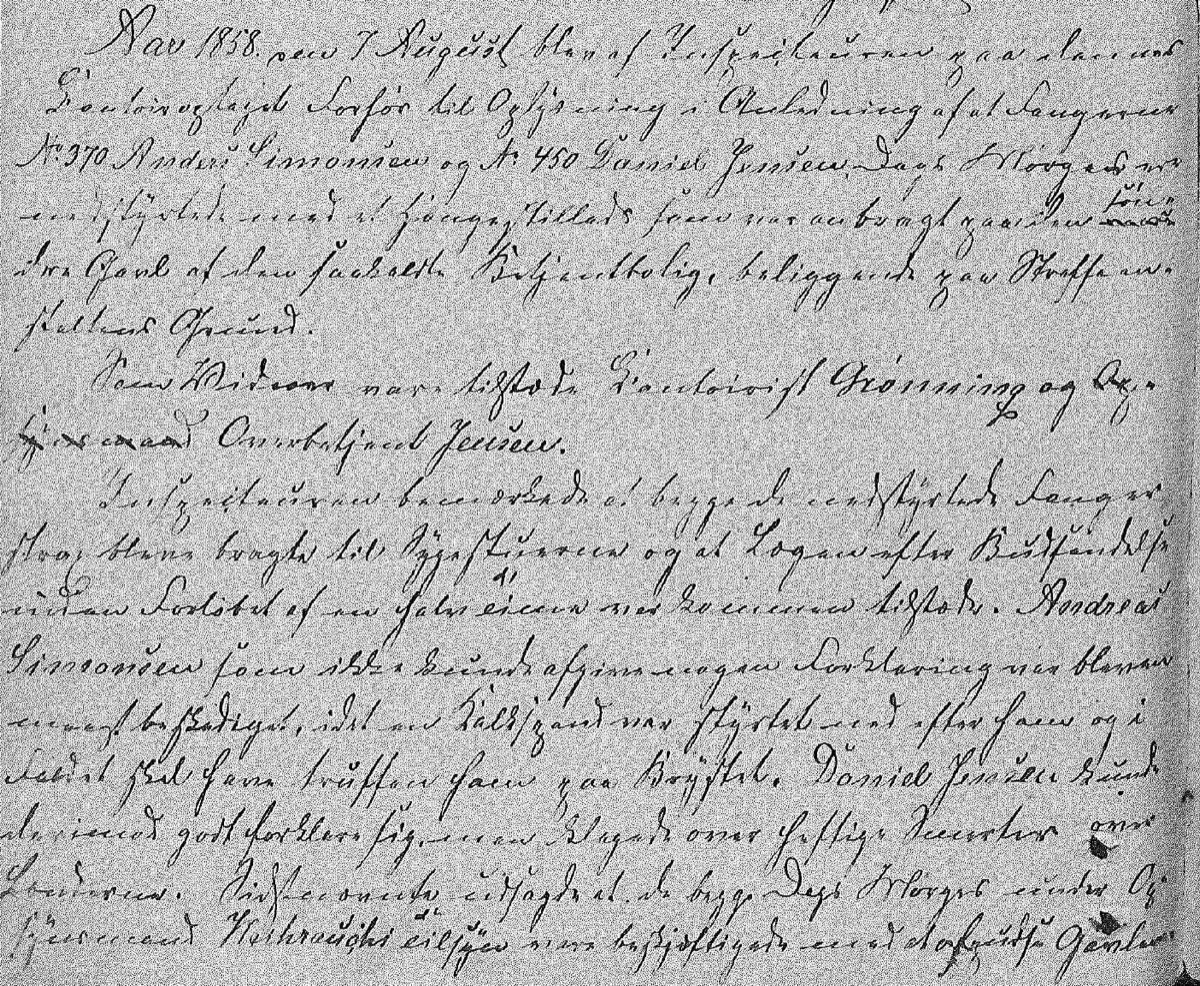 Aar 1858. den 7 August blev af Inspecteuren paa dennes
Contoir optaget Forhør til Oplysning i Anledning af at Fangerne
No 370 Anders Simonsen og No 450 Daniel Jensen Dags Morgen er
nedstyrtede med et Hængestillads som var anbragt paa den søn-
dre Gavl af den saakaldte Betjentbolig, beliggende paa Straffean-
staltens Grund.
Som Vidner vare tilstæde Contoirist Grønning og Op-
synsmand Overbetjent Jensen.
Inspecteuren bemærkede at begge de nedstyrtede Fanger
strax bleve bragte til Sygestuerne og at Lægen efter Budsendelse
inden Forløbet af en halv Time var kommen tilstæde. Andreas
Simonsen som ikke kunde afgive nogen Forklaring var bleven
meest beskadiget, idet en Kalkspand var styrtet ned efter ham og i
Faldet skal have truffen ham paa Brystet. Daniel Jensen kunde
derimod godt forklare sig, men klagede over heftige Smerter over
Lænderne. Sidstnævnte udsagde at de begge Dags Morges under Op
synsmand Tilsyn vare beskjæftigede med at afpudse Gavlen